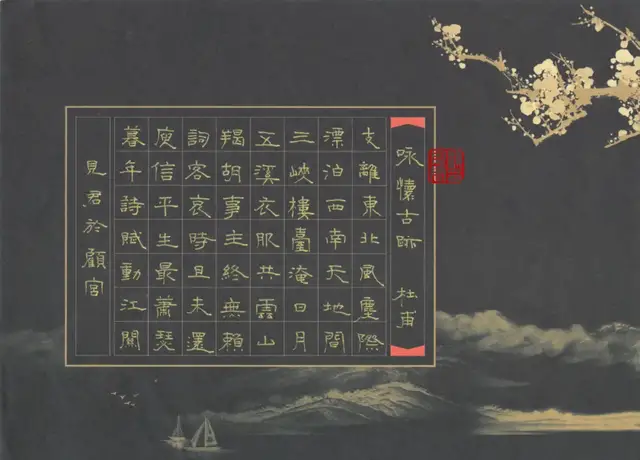 咏懷古跡 杜甫
支離東北風塵際
漂泊西南天地間
三峽樓臺淹日月
五溪衣服共雲山
羯胡事主終無賴
詞客哀時且未還
庾信平生最蕭瑟
暮年詩賦動江關
見君於顧宮